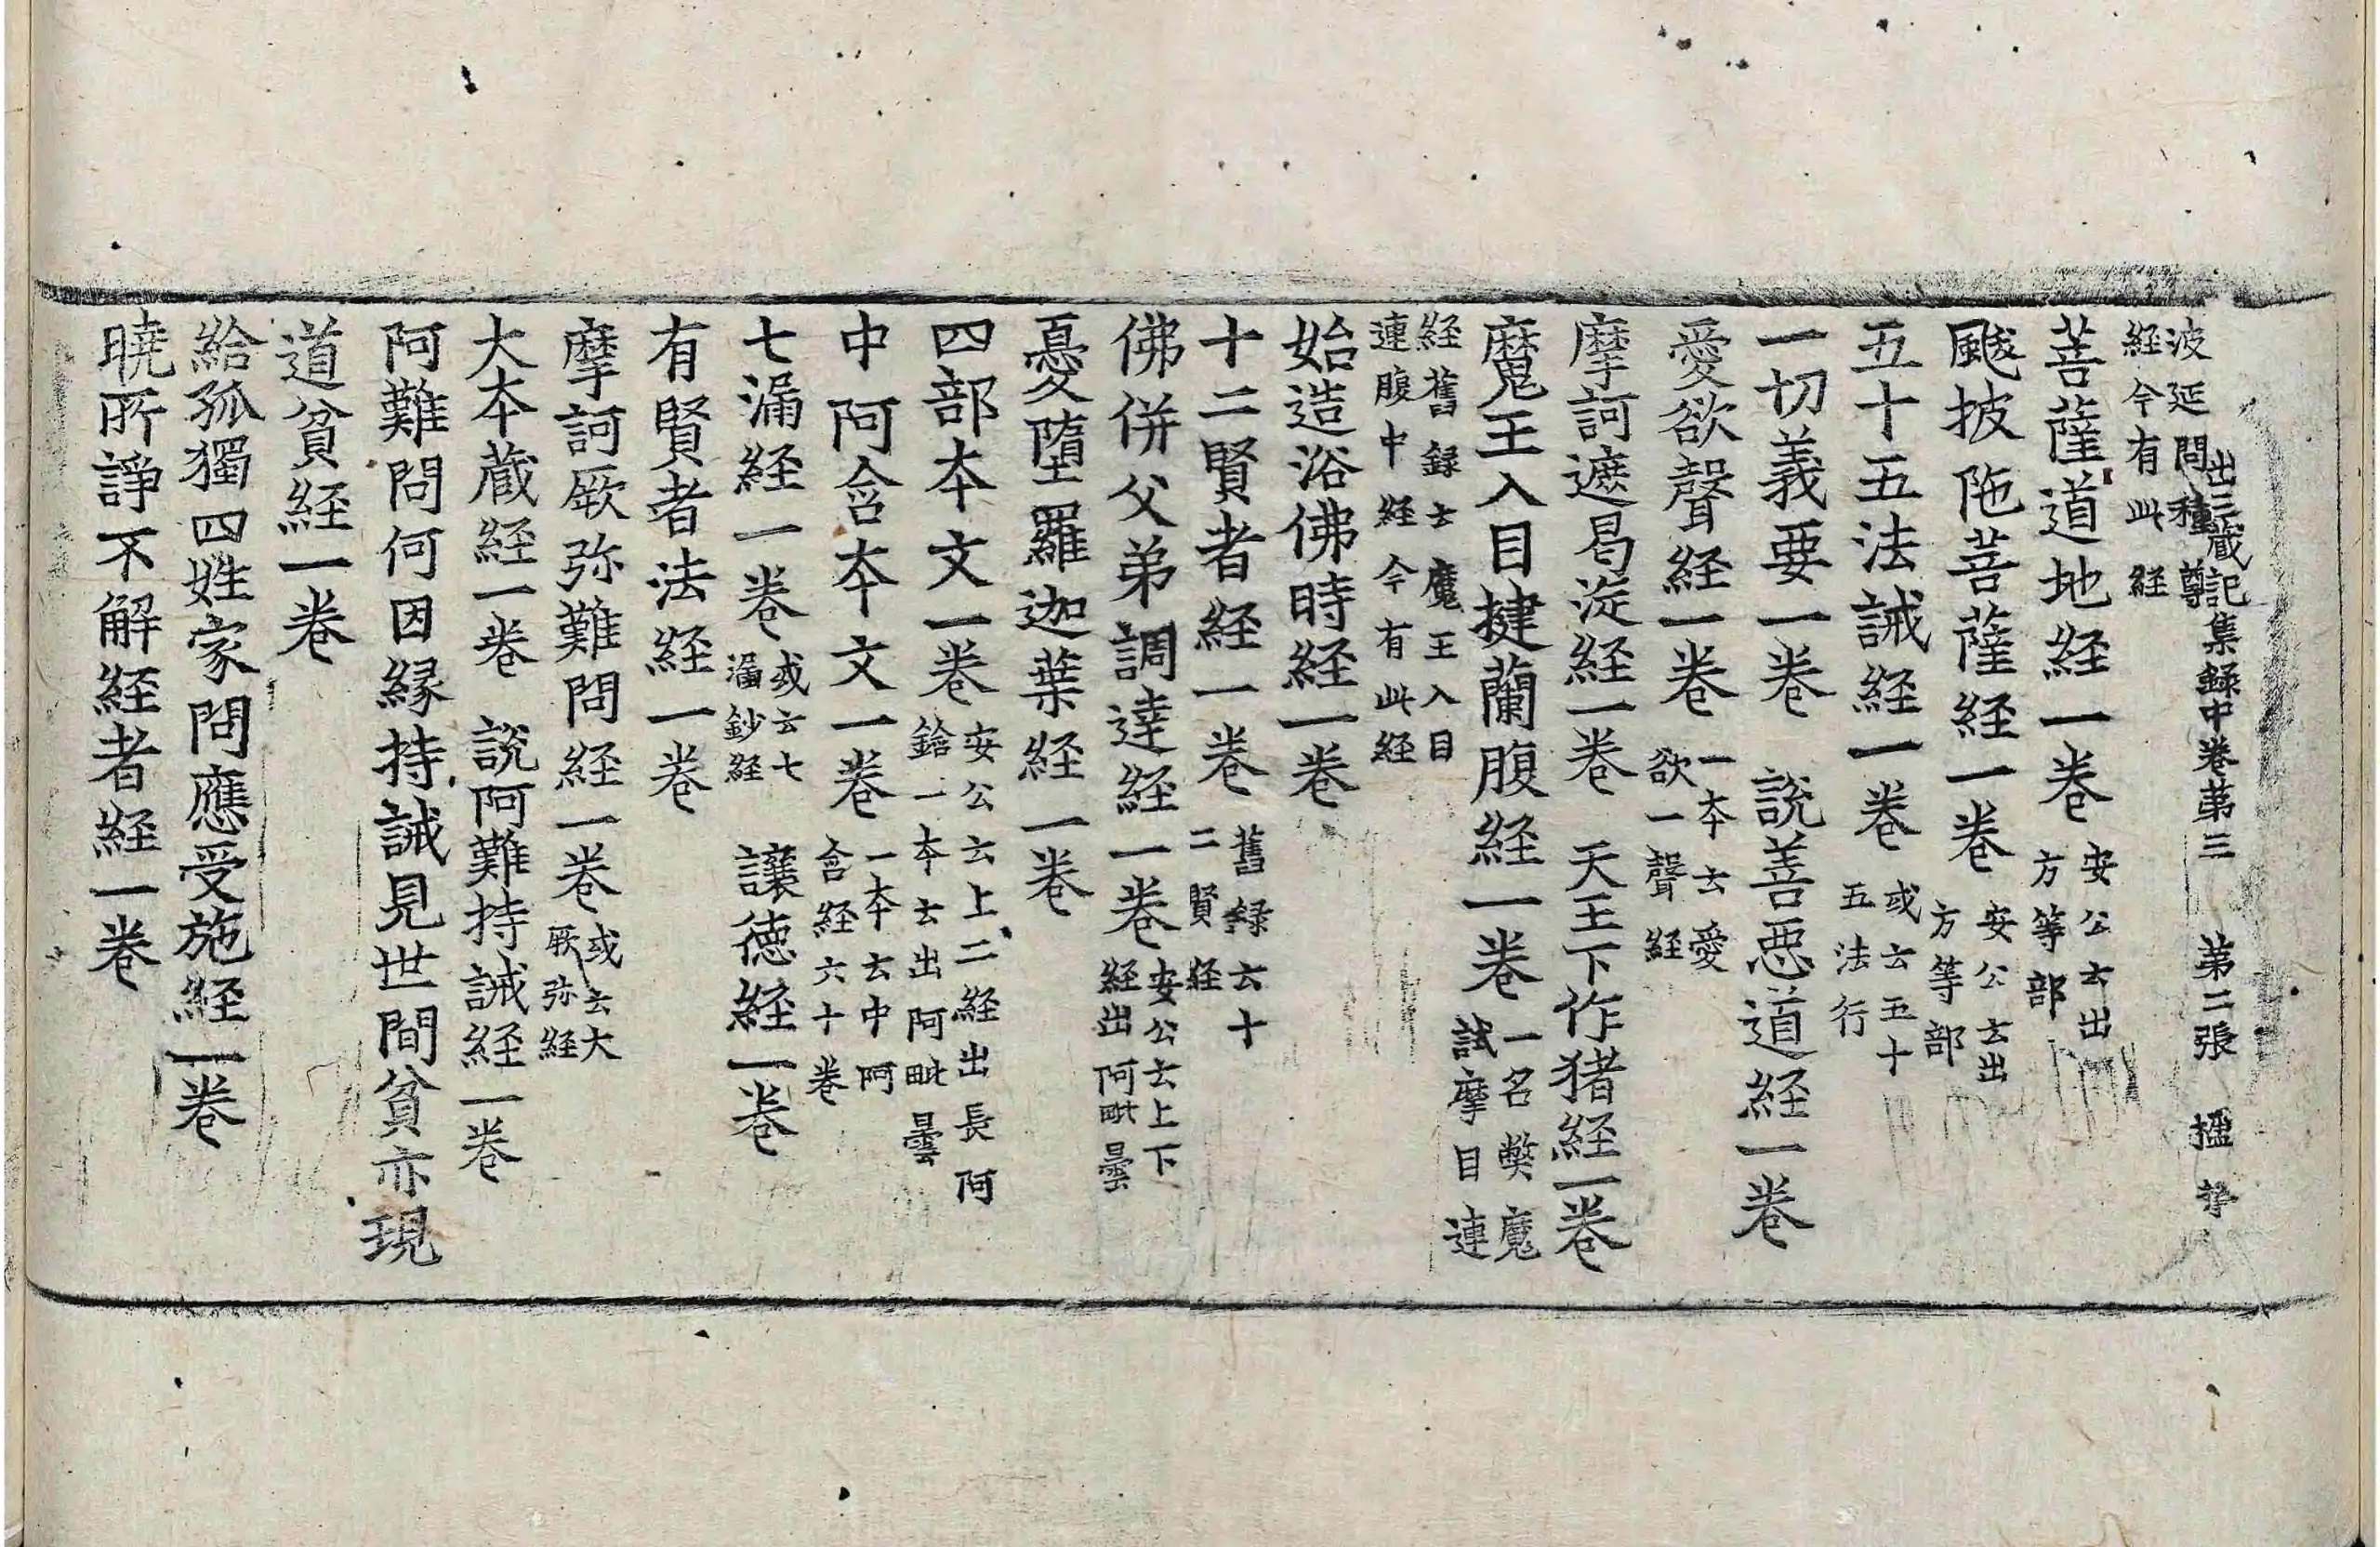 出三蔵記集録中巻苐三　苐二張　楹
波延問種尊
経今有此経
菩薩道地経一巻安公云出方等部
颰披陁菩薩経一巻安公云出方等部
五十五法誡経一巻或云五十五法行
一切義要一巻　說善惡道経一巻
愛欲聲経一巻一本云愛欲一聲経
摩訶遮曷漩経一巻　天王下作猪経一巻
魔王入目揵蘭腹経一巻一名弊魔試摩目連
経舊録云魔王入目
連腹中経今有此経
始造浴佛時経一巻
十二賢者経一巻舊録云十二賢経
佛併父弟調達経一巻安公云上下経出阿毗曇
憂墮羅迦葉経一巻
四部本文一巻安公云上二経出長阿鋡一本云出阿毗曇
中阿含本文一巻一本云中阿含経六十巻
七漏経一巻或云七漏鈔経　讓德経一巻
有賢者法経一巻
摩訶厥弥難問経一巻或云大厥弥経
大本蔵経一巻　說阿難持誡経一巻
阿難問何因縁持誡見世間貧亦現
道貧経一巻
給孤獨四姓家問應受施経一巻
曉所諍不解経者経一巻